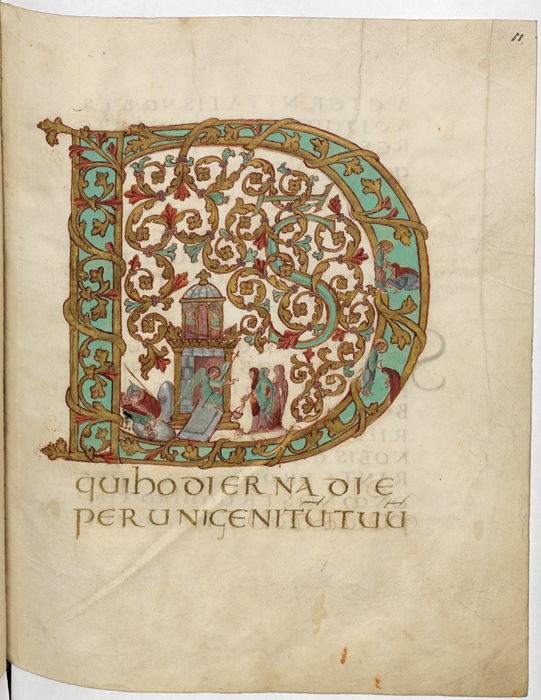 58.
DS
qui hodierna die
per unigenitū tuū